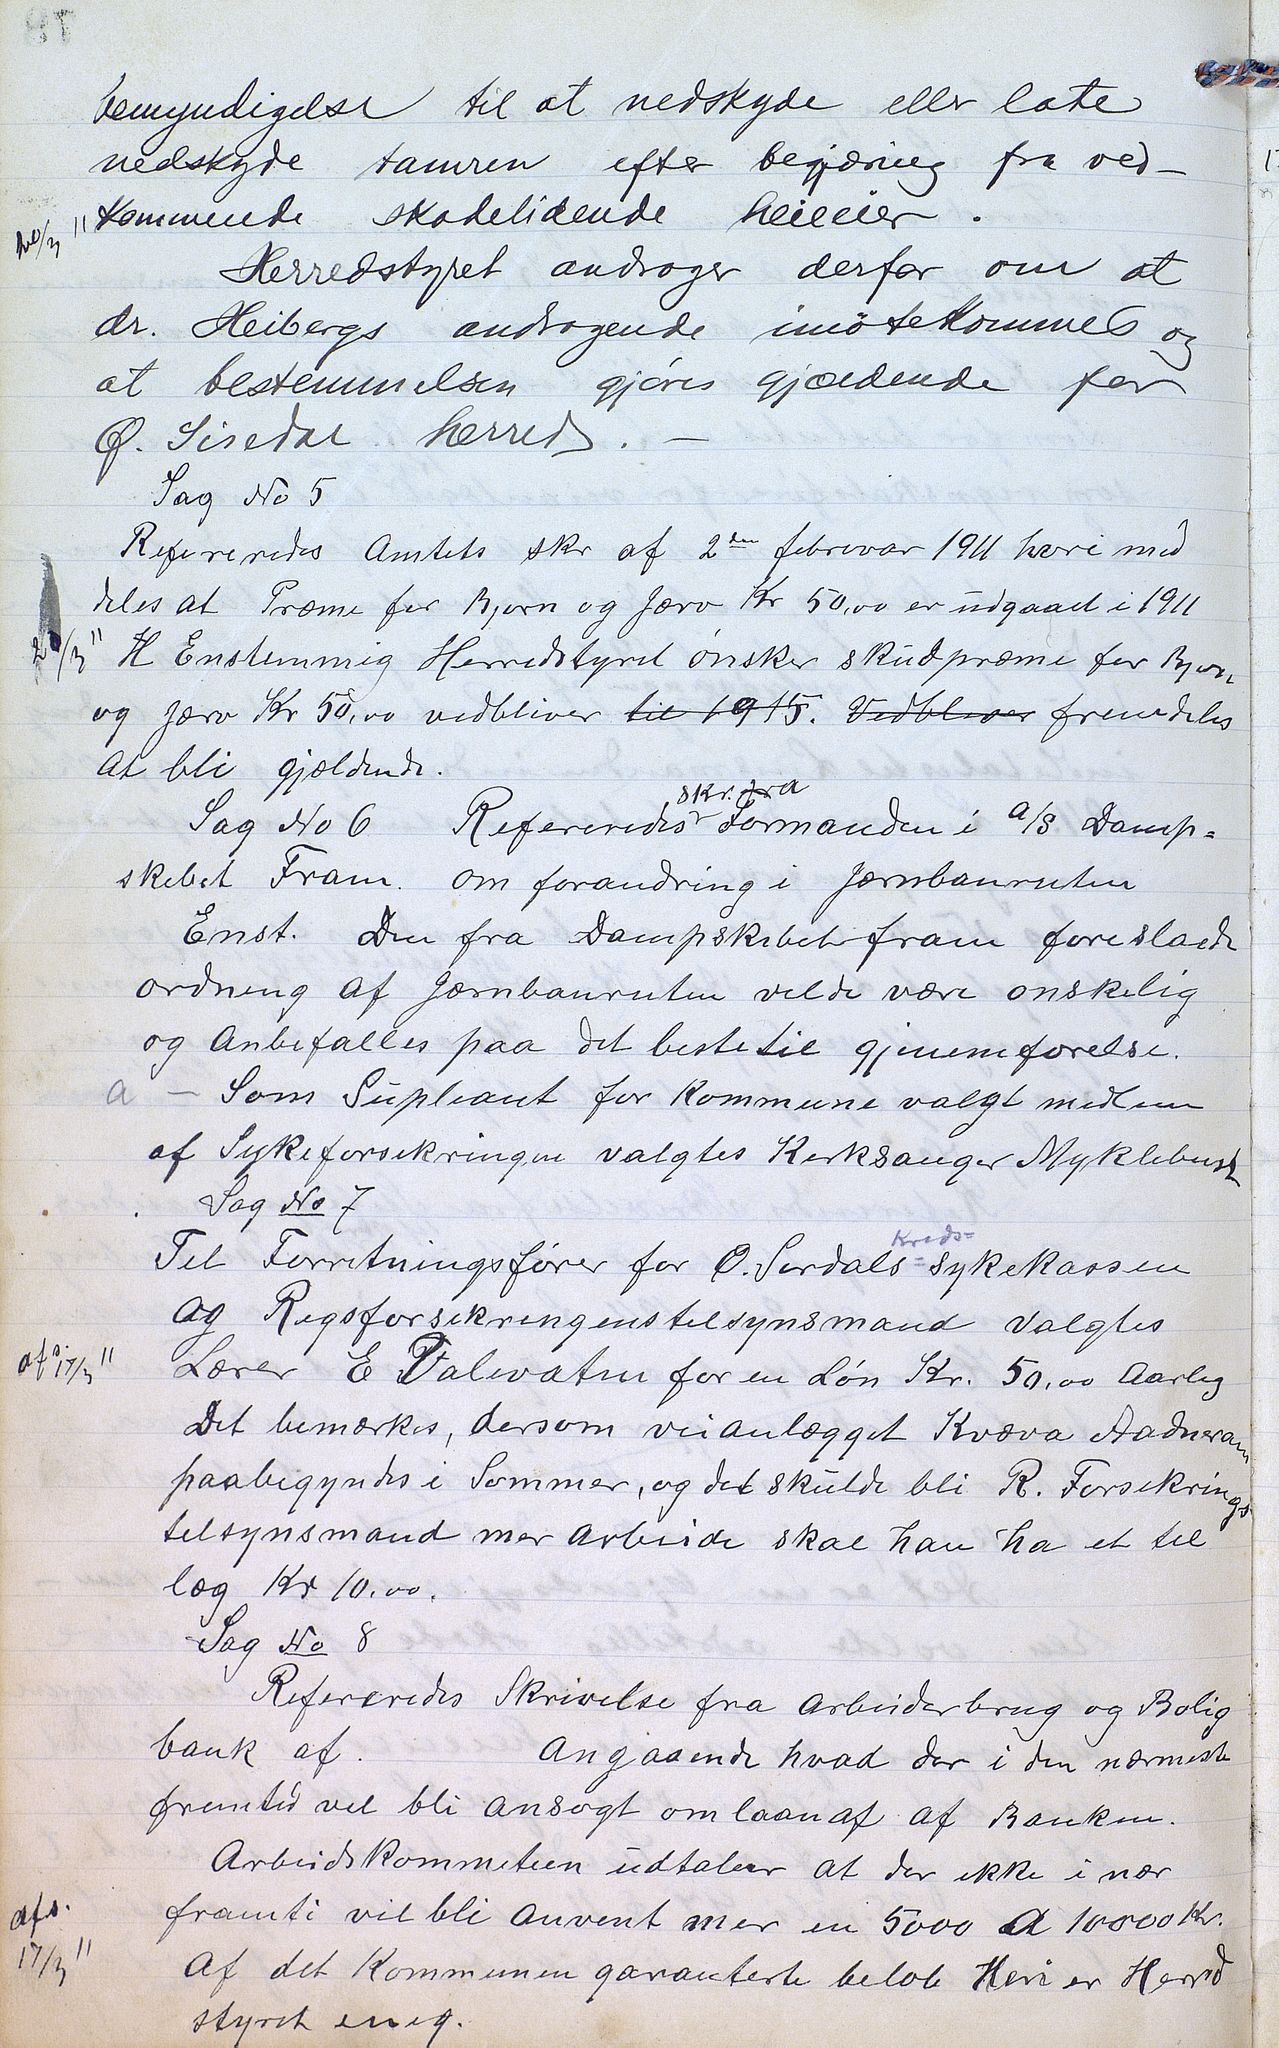 bemyndigelse til at nedskyde eller late
nedskyde tamren efter begjæring fra ved-
kommende skadelidende heieier.
20/3 11
Herredstyret androger derfor om at
dr. Heibergs andragende imøtekommes og
at bestemmelsen gjøres gjældende for
Ø. Siredal herred. —
Sag No 5
Refereredes Amtets skr af 2den februar 1911 hvori med
deles at Præme for Bjørn og Jærv Kr 50,00 er udgaaet i 1911
20/3 11
H Enstemmig Herredstyret ønsker skudpræme for Bjørn
og Jærv Kr 50,00 vedbliver til 1915. Vedbliver fremdeles
at bli gjældende.
Sag No 6 Refereredes skr. fra Formanden i A/S Damp-
skibet Fram. om forandring i Jærnbanruten
Enst. Den fra Dampskibet fram foreslaede
ordning af Jærnbanruten vilde være onskelig
og Anbefalles paa det beste til gjenemførelse.
a — Som Supleant for Kommune valgt medlem
af Sykeforsekringen valgtes Kirksanger Myklebust
Sag No 7
Til Forretningsfører for Ø. Serdals Kreds-sykekassen
og Regsforsekringens telsynsmand Valgtes
afs. 17/3 11
Lærer E Valevatn for en Løn Kr. 50,00 Aarleg
Det bemærkes, dersom veianlægget Kvæva Aadneram
paabegyndes i Sommer, og det skulde bli R. Forsekrings
telsynsmand mer Arbeide skal han ha et til
læg Kr 10,00.
Sag No 8
Refereredes Skrivelse fra Arbeiderbrug og Bolig
bank af. Angaaende hvad der i den nærmeste
fremtid vil bli ansøgt om laan af af Banken.
Arbeidskommeteen udtaler at der ikke i nær
framti vil bli anvent mer en 5000 a 10000 Kr.
afs. 17/3 11
Af det Kommunen garanterte beløb Heri er Herred
styret eneg.